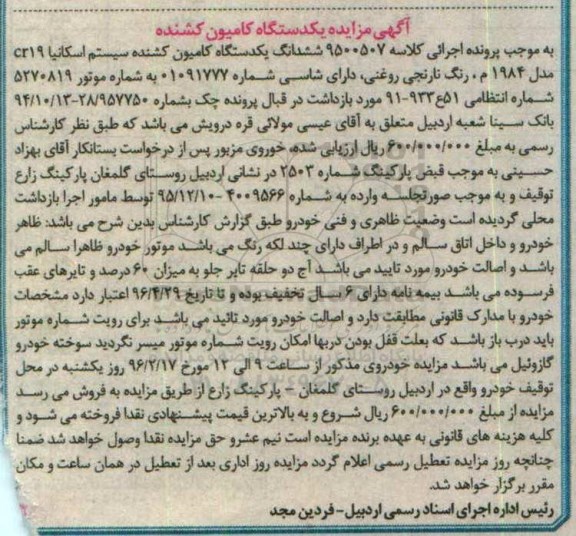 آگهی مزایده یکدستگاه کامیون کشنده
به موجب پرونده اجرائی کلاسه ۹۵۰۰۵۰۷ ششدانگ یکدستگاه کامیون کشنده سیستم اسکانیا cr۱۹
مدل ۱۹۸۴ م ، رنگ نارنجی روغنی، دارای شاسی شماره ۰۱۰۹۱۷۷۷ به شماره موتور ۵۲۷۰۸۱۹
شماره انتظامی ۵۱ع۹۳۳-۹۱ مورد بازداشت در قبال پرونده چک بشماره ۲۸/۹۵۷۷۵۰-۹۴/۱۰/۱۳
بانک سینا شعبه اردبیل متعلق به آقای عیسی مولائی قره درویش می باشد که طبق نظر کارشناس
رسمی به مبلغ ۶۰۰/۰۰۰/۰۰۰ ریال ارزیابی شده، خوروی مزبور پس از درخواست بستانکار آقای بهزاد
حسینی به موجب قبض پارکینگ شماره ۲۵۰۳ در نشانی اردبیل روستای گلمغان پارکینگ زارع
توقیف و به موجب صورتجلسه وارده به شماره ۴۰۰۹۵۶۶ -۹۵/۱۲/۱۰ توسط مامور اجرا بازداشت
محلی گردیده است وضعیت ظاهری و فنی خودرو طبق گزارش کارشناس بدین شرح می باشد: ظاهر
خودرو و داخل اتاق سالم و در اطراف دارای چند لکه رنگ می باشد موتور خودرو ظاهرا سالم می
باشد و اصالت خودرو مورد تایید می باشد آج دو حلقه تایر جلو به میزان ۶۰ درصد و تایرهای عقب
فرسوده می باشد بیمه نامه دارای ۶ سال تخفیف بوده و تا تاریخ ۹۶/۴/۲۹ اعتبار دارد مشخصات
خودرو با مدارک قانونی مطابقت دارد و اصالت خودرو مورد تائید می باشد برای رویت شماره موتور
باید درب باز باشد که بعلت قفل بودن دربها امکان رویت شماره موتور میسر نگردید سوخته خودرو
گازوئیل می باشد مزایده خودروی مذکور از ساعت ۹ الی ۱۲ مورخ ۹۶/۲/۱۷ روز یکشنبه در محل
توقیف خودرو واقع در اردبیل روستای گلمغان – پارکینگ زارع از طریق مزایده به فروش می رسد
مزایده از مبلغ ۶۰۰/۰۰۰/۰۰۰ ریال شروع و به بالاترین قیمت پیشنهادی نقدا فروخته می شود و
کلیه هزینه های قانونی به عهده برنده مزایده است نیم عشرو حق مزایده نقدا وصول خواهد شد ضمنا
چنانچه روز مزایده تعطیل رسمی اعلام گردد مزایده روز اداری بعد از تعطیل در همان ساعت و مکان
مقرر برگزار خواهد شد.
رئیس اداره اجرای اسناد رسمی اردبیل- فردین مجد